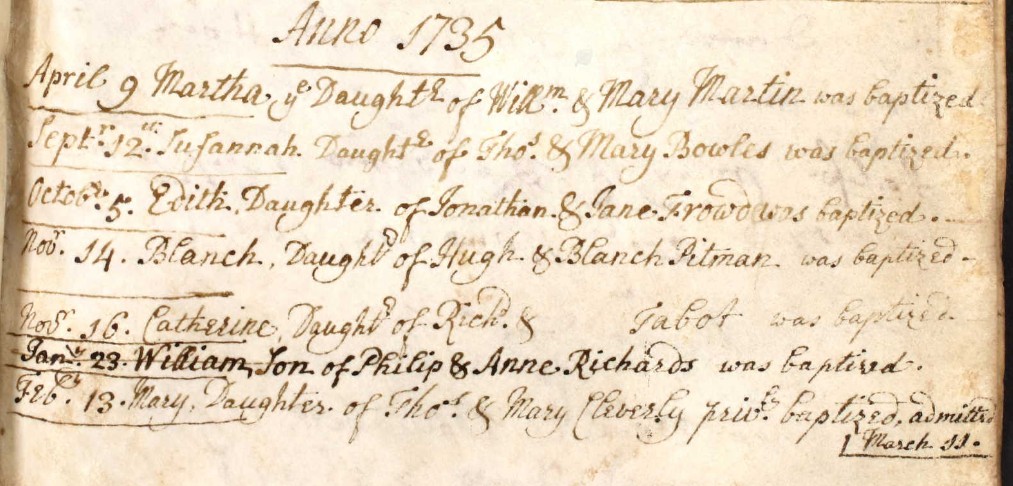 Anno 1735
April 9 Martha yᵉ Daughtʳ of Willᵐ. & Mary Martin was baptized
Septʳ. 12ᵗʰ. Susannah Daughtʳ of Thoˢ. & Mary Bowles was baptized.
Octobʳ. 5. Edith, Daughter of Jonathan & Jane Frowd was baptized.
Novʳ. 14. Blanch, Daughtʳ of Hugh & Blanch Pitman was baptized
Novʳ. 16. Catherine, Daughtʳ of Richᵈ. & Tabot was baptized
Janʸ. 23. William, Son of Philip & Anne Richards was baptized.
Febʳ. 13. Mary, Daughter of Thoˢ. & Mary Cleverly privˡʸ baptized, admitted
March 11.